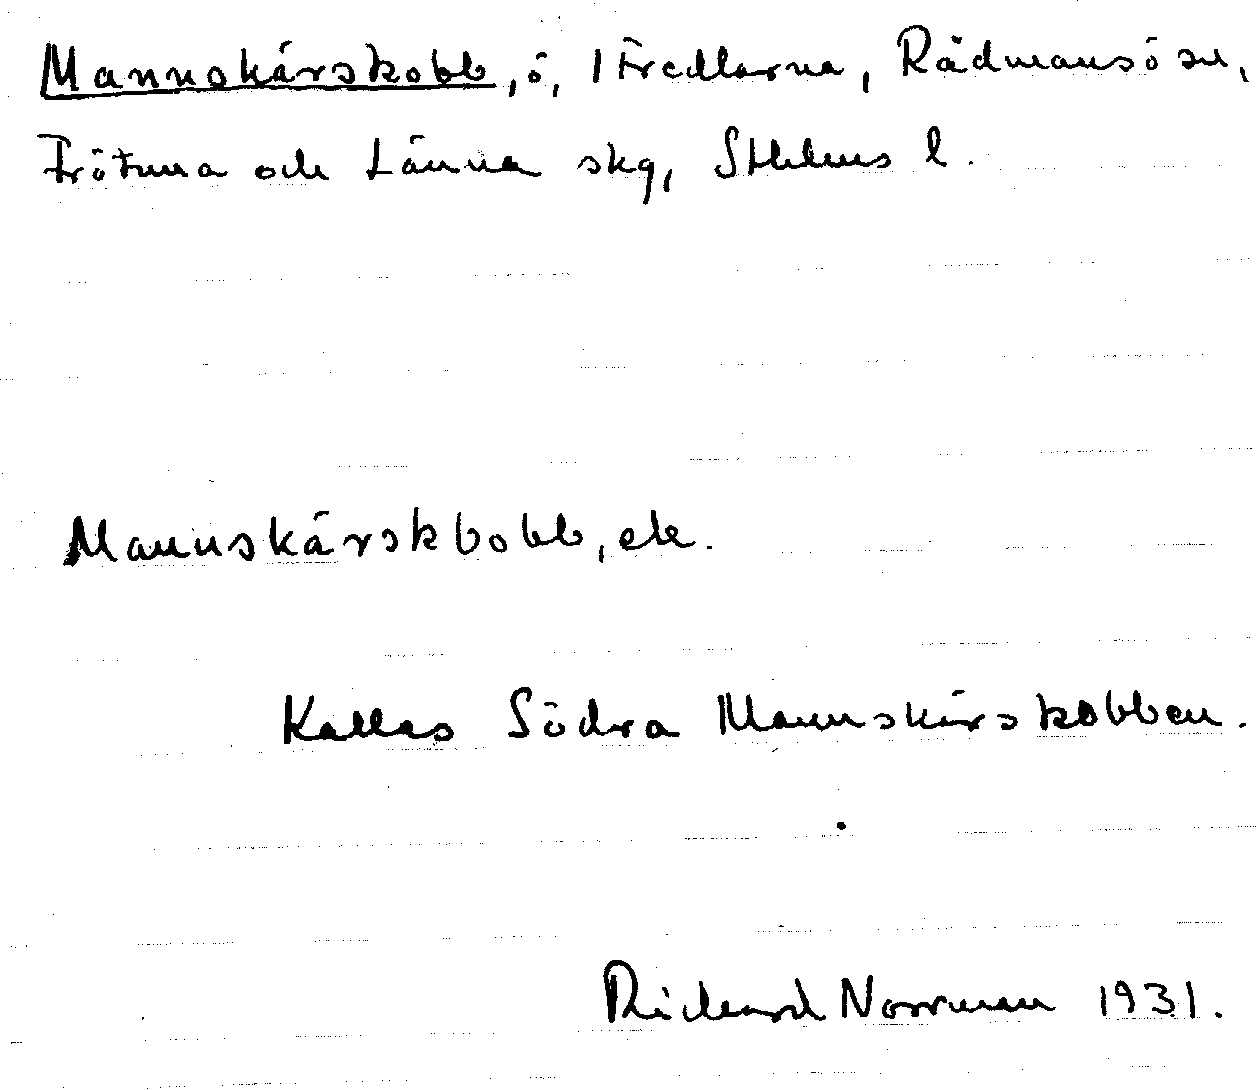 Mannskärskobb, ö, i Fredlarna, Rådmansö sn,
Frötuna och Länna skg, Sthlms l.
Mannskärskbobb, ek.
Kallas Södra Mannskärskobben.
Rickard Norrman 1931.